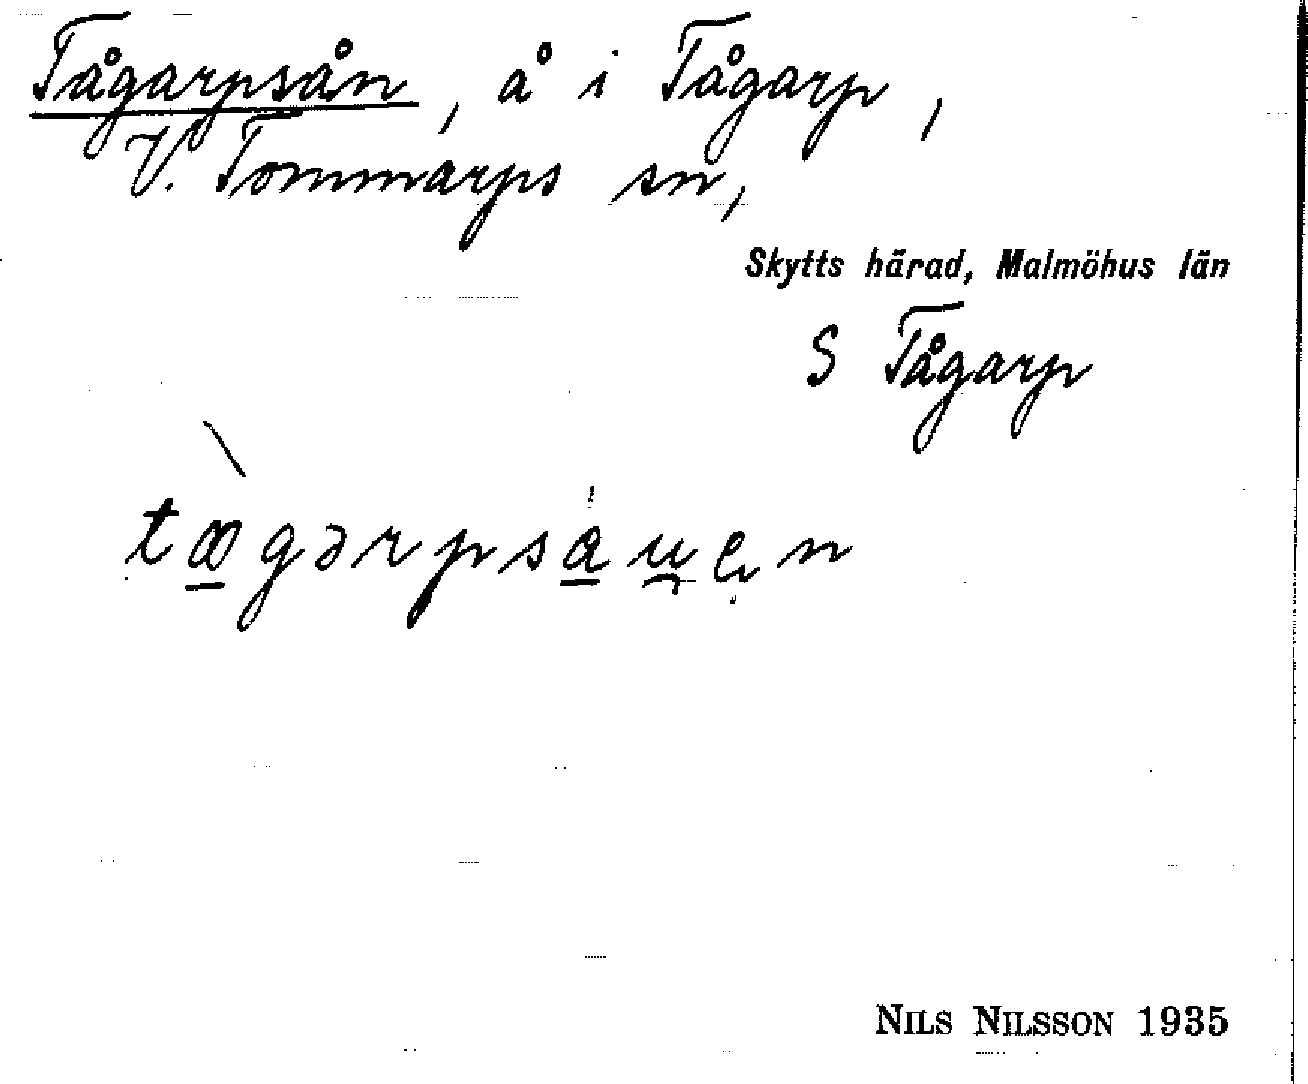 Tågarpsån, å i Tågarp,
V. Tommarps sn,
Skytts härad, Malmöhus län
S Tågarp
tægərpsauen
NILS NILSSON 1935